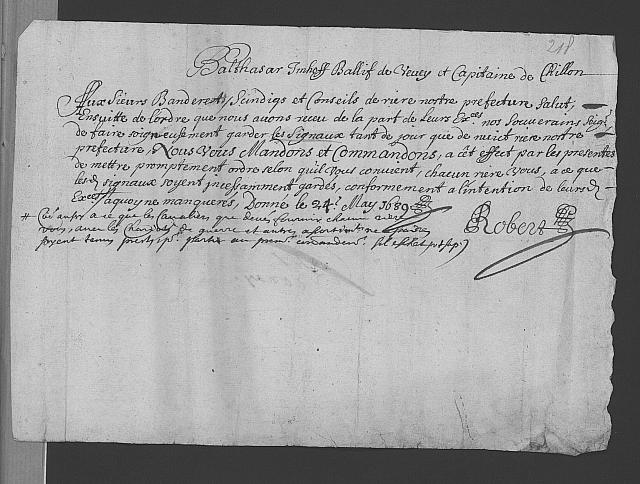 218
Balthasar Imhoff Ballif de Vevey et Capitaine de Chillon
Aux Sieurs Banderets, Scindigs et Conseils de riere nostre prefecture Salut,
Ensuitte de lordre que nous avons receu de la part de leurs Exces nos Souverains Seigrs
de faire soigneusement garder les Signaux tant de jour que de nuict riere nostre
prefecture, Nous Vous Mandons et Commandons, a cêt effect par les presentes
de mettre promptement ordre selon qu'il vous convient, chacun riere Vous, a ce que
lesd. signaux soyent incessamment gardés, conformement a l'intention de leursd.
Exces, a quoy ne manquerés, Donné le 24e May 1689
# Comê aussy a ce que les Cavaliers que devés fournir chacun riere
vous, avec les chariots de guerre et autres
soyent tenus prests pr partir au premr commandemt
Robert